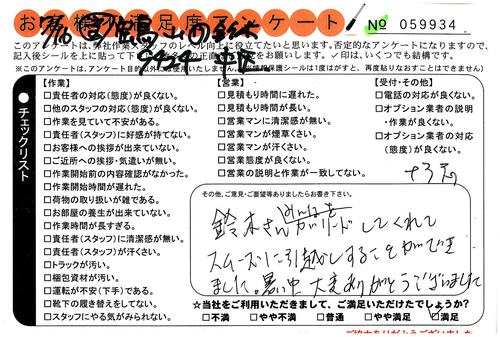 お客様満足度アンケート!
№ 059934
このアンケートは、弊社作業スタッフのレベル向上に役立てたいと思います。否定的なアンケートになりますので、
記入後シールを上に貼って下
をお願いします。✓印は、いくつでも結構です。
●チェックリスト
【作業】
□責任者の対応(態度)が良くない。
□他のスタッフの対応(態度)が良くない。
□作業を見ていて不安がある。
□責任者(スタッフ)に好感が持てない。
□お客様への挨拶が出来ていない。
□ご近所への挨拶・気遣いが無い。
□作業開始前の内容確認がなかった。
□作業開始時間が遅れた。
□荷物の取り扱いが雑である。
□お部屋の養生が出来ていない。
□作業時間が長すぎる。
□責任者(スタッフ)に清潔感が無い。
□責任者(スタッフ)が汗くさい。
□トラックが汚い。
□梱包資材が汚い。
□運転が不安(下手)である。
□靴下の履き替えをしてない。
□スタッフにやる気がみられない。
【営業】
□見積もり時間に遅れた。
□見積もり時間が長い。
□営業マンに清潔感が無い。
□営業マンが煙草くさい。
□営業マンが汗くさい。
□営業態度が良くない。
□営業の説明と作業が一致してない。
【受付・その他】
□電話の対応が良くない。
□オプション業者の説明
・作業が良くない。
□オプション業者の対応
(態度)が良くない。
その他、ご意見・ご要望等ありましたらお書き下さい。
みんなを
鈴木さんがリードしてくれて
スムーズに引越しすることができ
ました。暑い中 大変ありがとうございました
☆当社をご利用いただきまして、ご満足いただけたでしょうか?
□不満 □やや不満 □普通 □やや満足 □満足